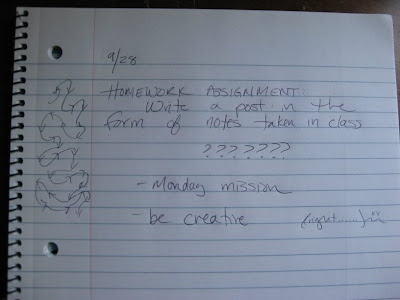 9/28
HOMEWORK ASSIGNMENT:
Write a post in the
form of notes taken in class
???????
- Monday mission
- be creative (right......)